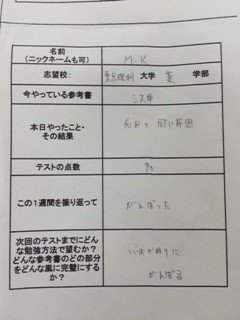 名前
(ニックネームも可)
M.K
志望校:
東京理科 大学 薬 学部
今やっている参考書
シス単
本日やったこと・
その結果
前日と同じ範囲
テストの点数
90
この1週間を振り返って
がんばった
次回のテストまでにどん
な勉強方法で望むか?
どんな参考書のどの部分
をどんな風に完璧にする
か?
がんばる